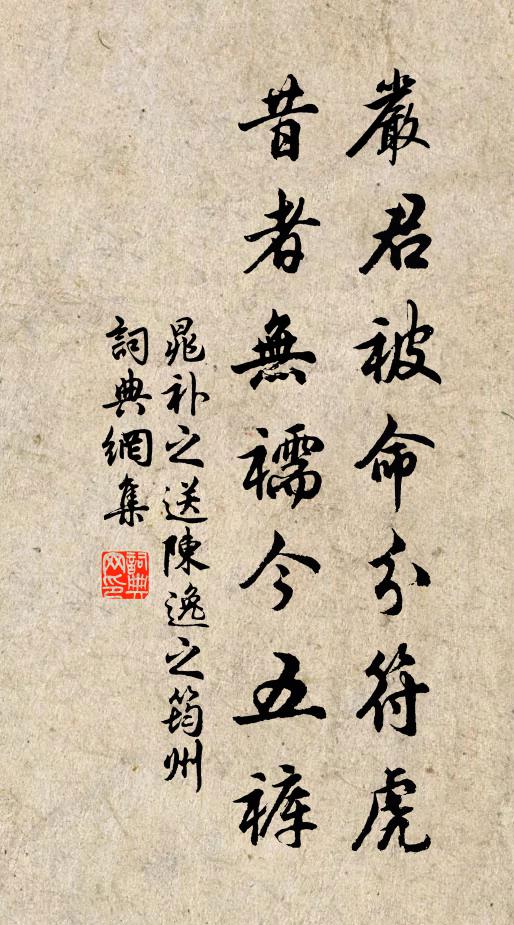 嚴君被命分符虎
昔者無襦今五褲
晁补之送陳逸之筠州
詞典網集
詞典网印